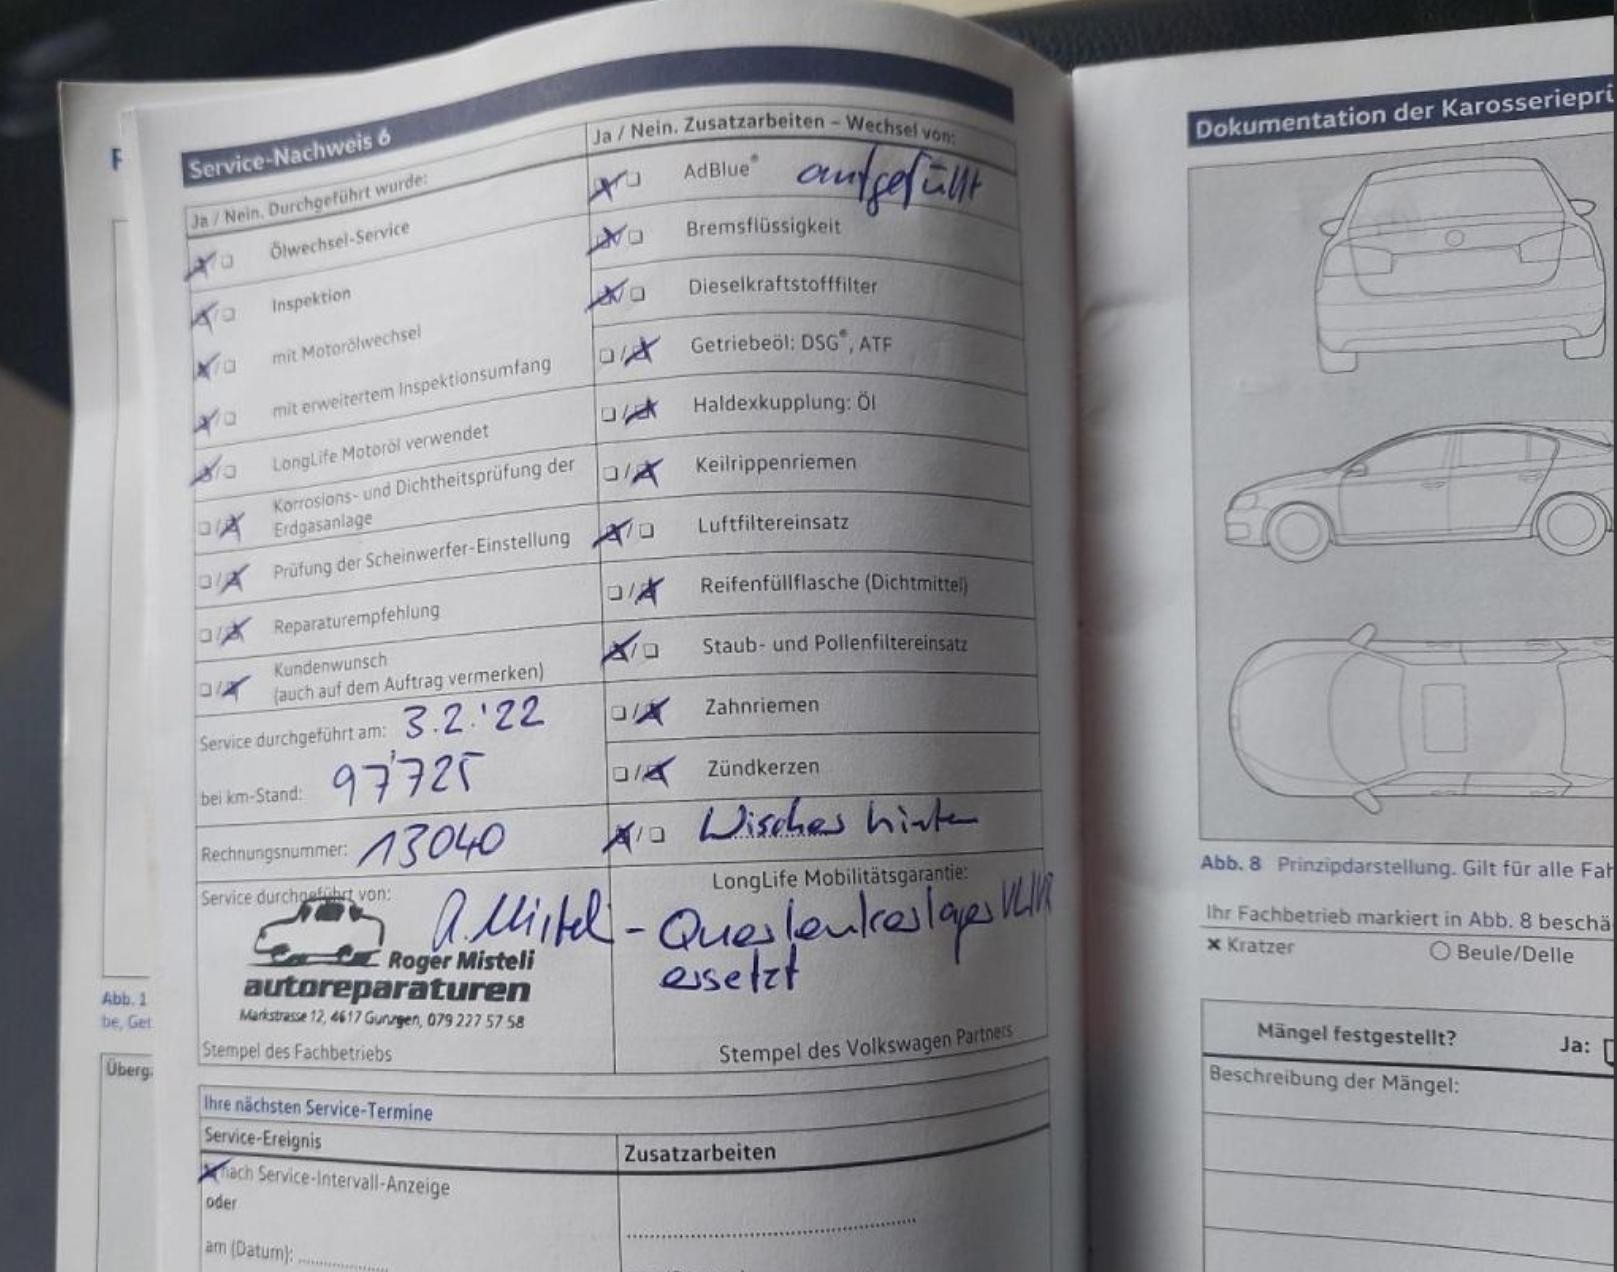 Service-Nachweis 6
Ja / Nein. Durchgeführt wurde:
Ölwechsel-Service
Inspektion
mit Motorölwechsel
mit erweitertem Inspektionsumfang
LongLife Motoröl verwendet
Korrosions- und Dichtheitsprüfung der
Erdgasanlage
Prüfung der Scheinwerfer-Einstellung
Reparaturempfehlung
Kundenwunsch
(auch auf dem Auftrag vermerken)
Service durchgeführt am: 3.2.'22
bei km-Stand: 97'725
Rechnungsnummer: 13040
Service durchgeführt von:
Roger Misteli
autoreparaturen
Markstrasse 12, 4617 Gunzgen, 079 227 57 58
Stempel des Fachbetriebs
Ja / Nein. Zusatzarbeiten – Wechsel von:
AdBlue® aufgefüllt
Bremsflüssigkeit
Dieselkraftstofffilter
Getriebeöl: DSG®, ATF
Haldexkupplung: Öl
Keilrippenriemen
Luftfiltereinsatz
Reifenfüllflasche (Dichtmittel)
Staub- und Pollenfiltereinsatz
Zahnriemen
Zündkerzen
Wischer hinten
LongLife Mobilitätsgarantie:
- Querlenkerlager
ersetzt
Stempel des Volkswagen Partners
Ihre nächsten Service-Termine
Service-Ereignis
nach Service-Intervall-Anzeige
oder
am (Datum):
Zusatzarbeiten
Abb. 1
be, Get
Überg
Dokumentation der Karosserieprü
Abb. 8 Prinzipdarstellung. Gilt für alle Fah
Ihr Fachbetrieb markiert in Abb. 8 beschä
× Kratzer
Beule/Delle
Mängel festgestellt?
Ja:
Beschreibung der Mängel: